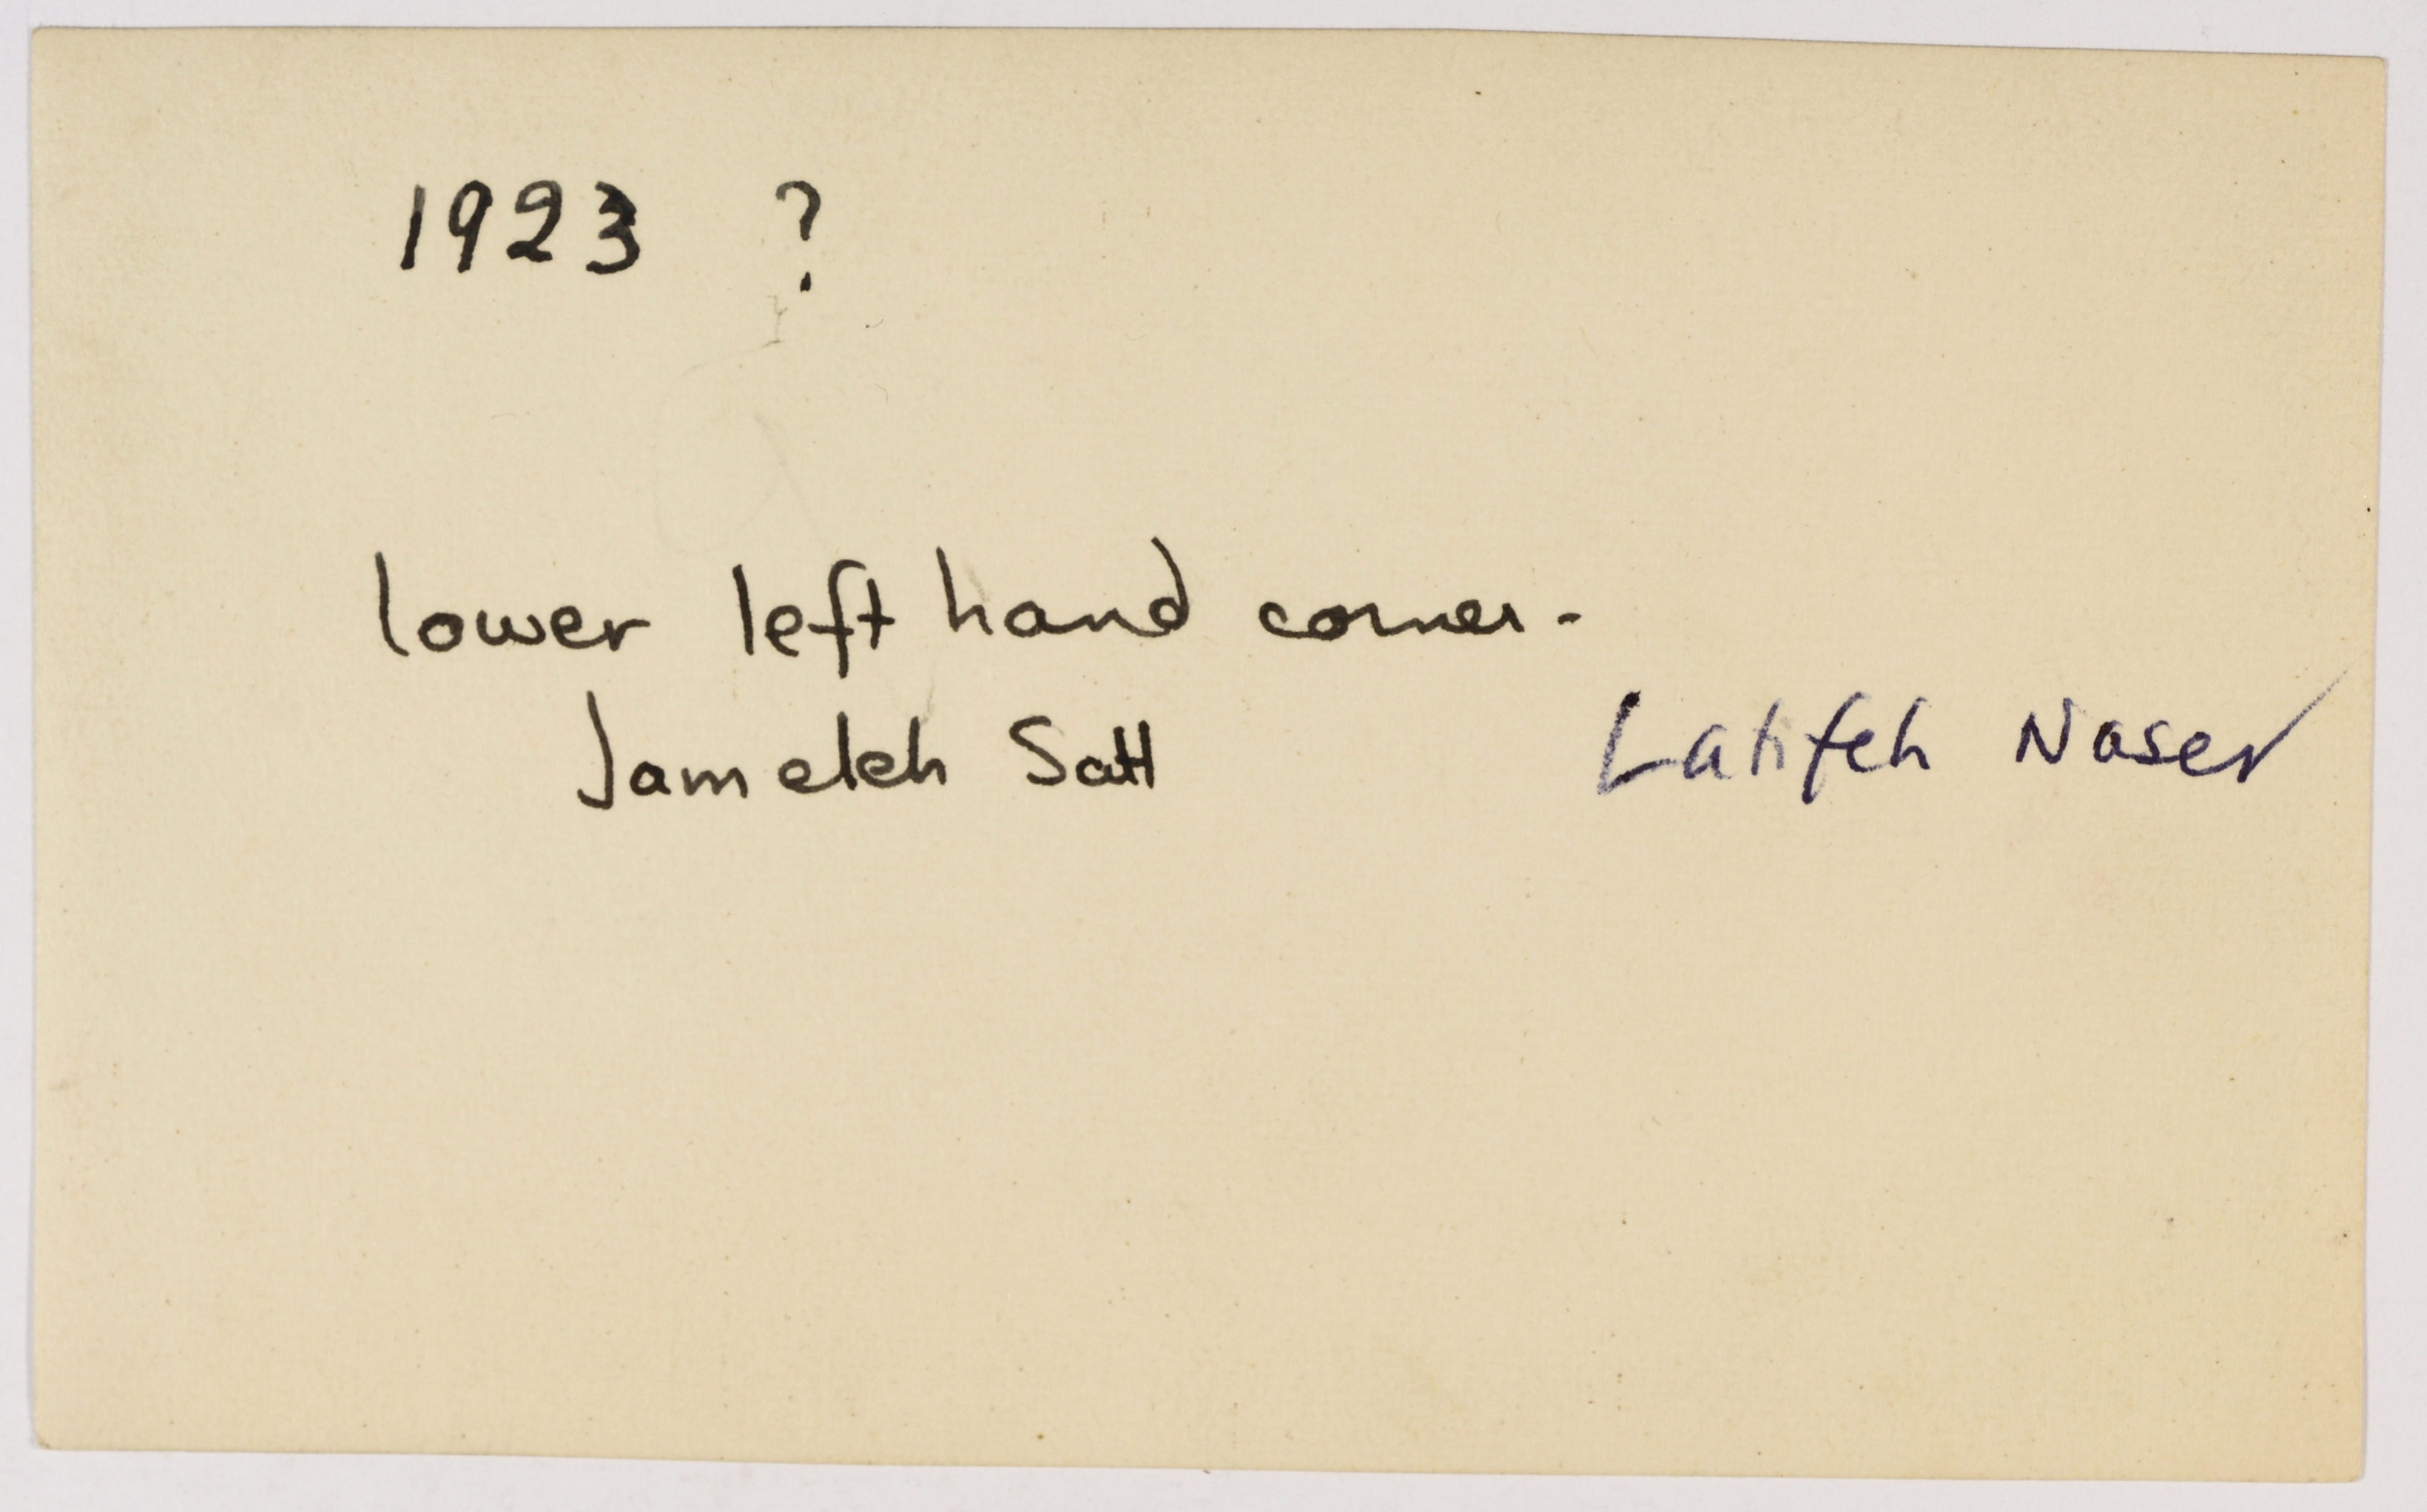 1923 ?
lower left hand corner.
Jameleh Latifeh Naser